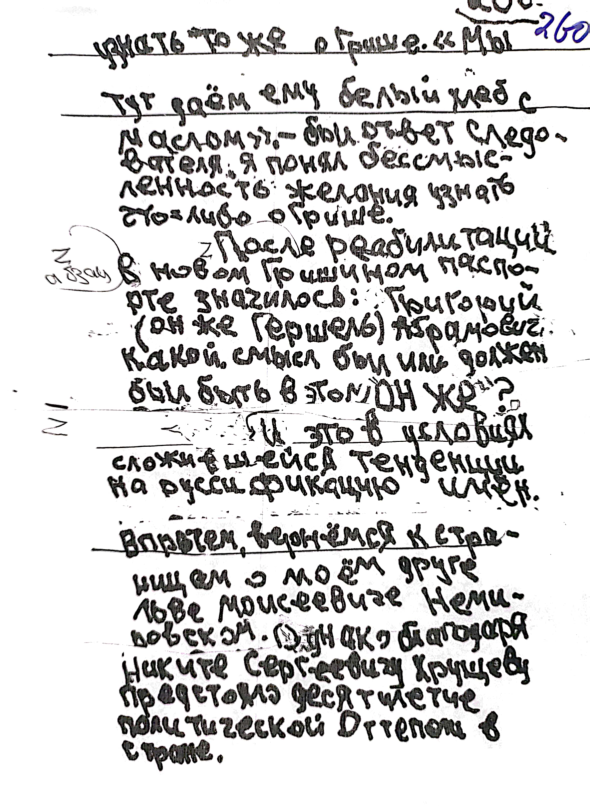 260
узнать то же о Грише. «Мы
тут даём ему белый хлеб с
маслом», – был ответ следо-
вателя. Я понял бессмыс-
ленность желания узнать
что-либо о Грише.
Z После реабилитации
Z абзац
в новом Гришином паспо-
рте значилось: Григорий
(он же Гершель) Абрамович.
Какой смысл был или должен
был быть в этом „ОН ЖЕ"?
И это в условиях
сложившейся тенденции
на руссификацию имён.
Впрочем, вернёмся к стра-
ницам о моём друге
Льве Моисеевиче Неми-
ровском. Однако благодаря
Никите Сергеевичу Хрущеву
предстояло десятилетие
политической Оттепели в
стране.